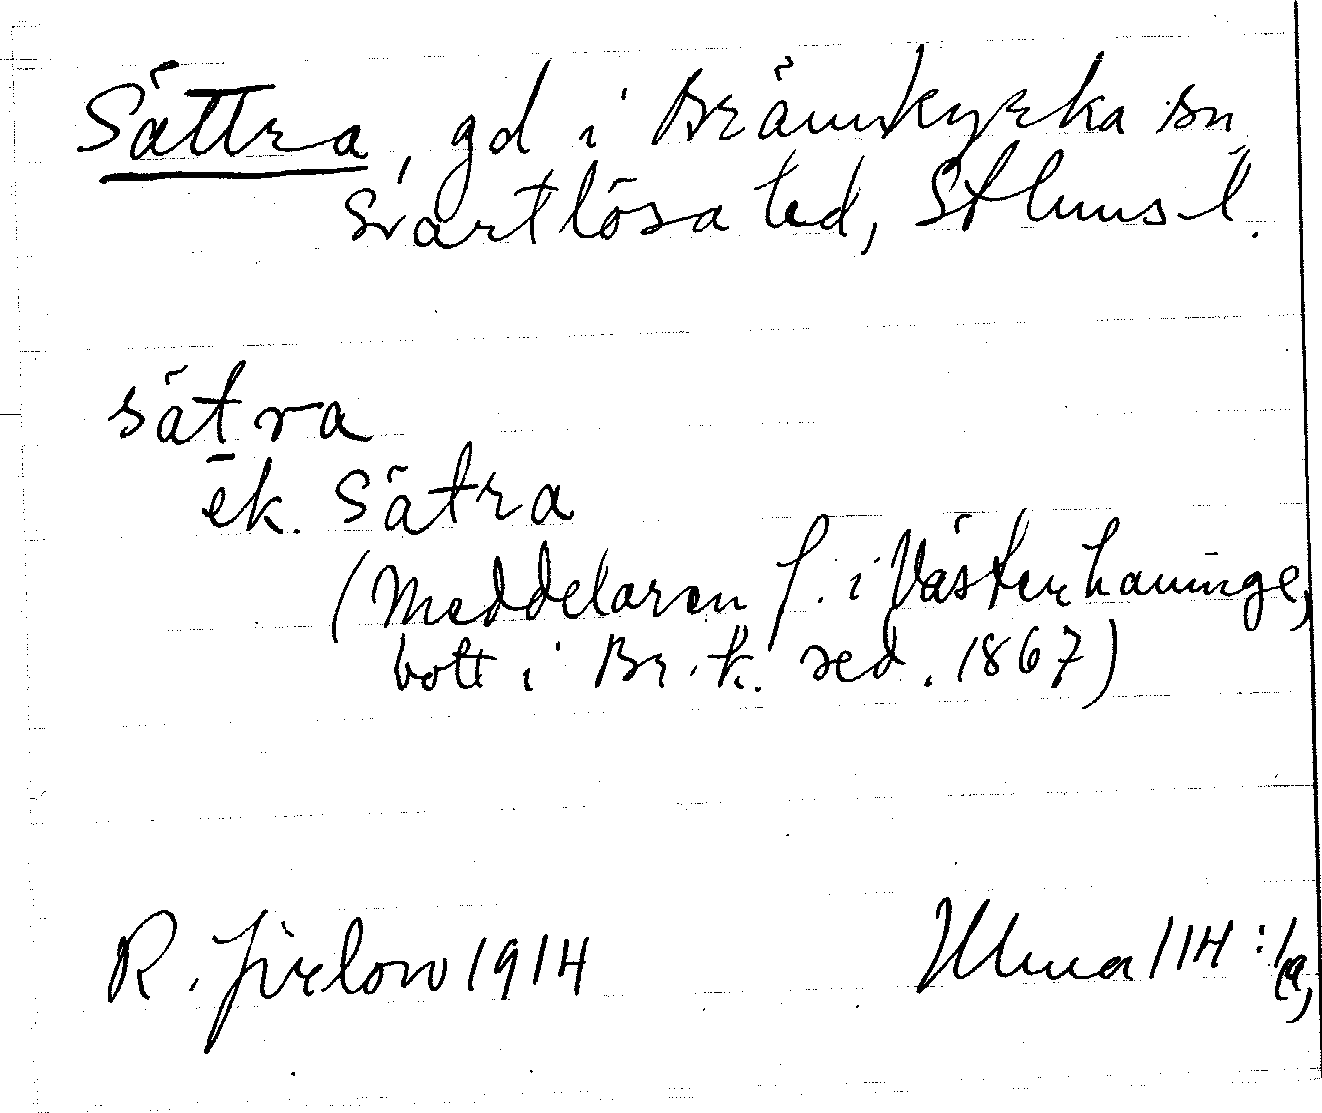 Sättra, gd i Brännkyrka sn,
Svartlösa hd, Sthlms l.
sätra
ek. Sätra
(Meddelaren f. i Västerhaninge,
bott i Br.k. sed. 1867)
R. Jirlow 1914